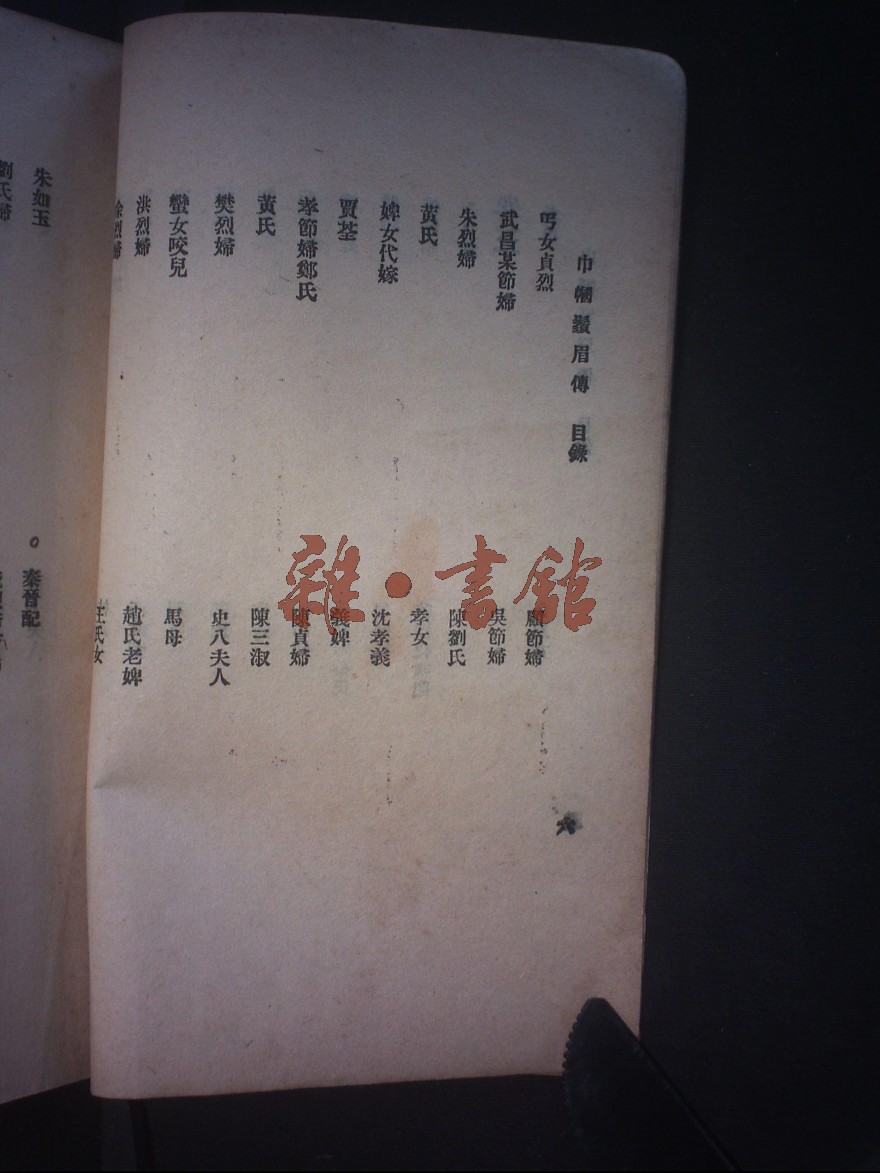 巾幗鬚眉傳 目錄
六
丐女貞烈
顧節婦
武昌某節婦
吳節婦
朱烈婦
陳劉氏
黃氏
孝女
婢女代嫁
沈孝義
賈荃
義婢
孝節婦鄭氏
陳貞婦
黃氏
陳三淑
樊烈婦
史八夫人
蠻女咬兒
馬母
洪烈婦
趙氏老婢
徐烈婦
王氏女
朱如玉
秦晉配
劉氏婦
雜·書館